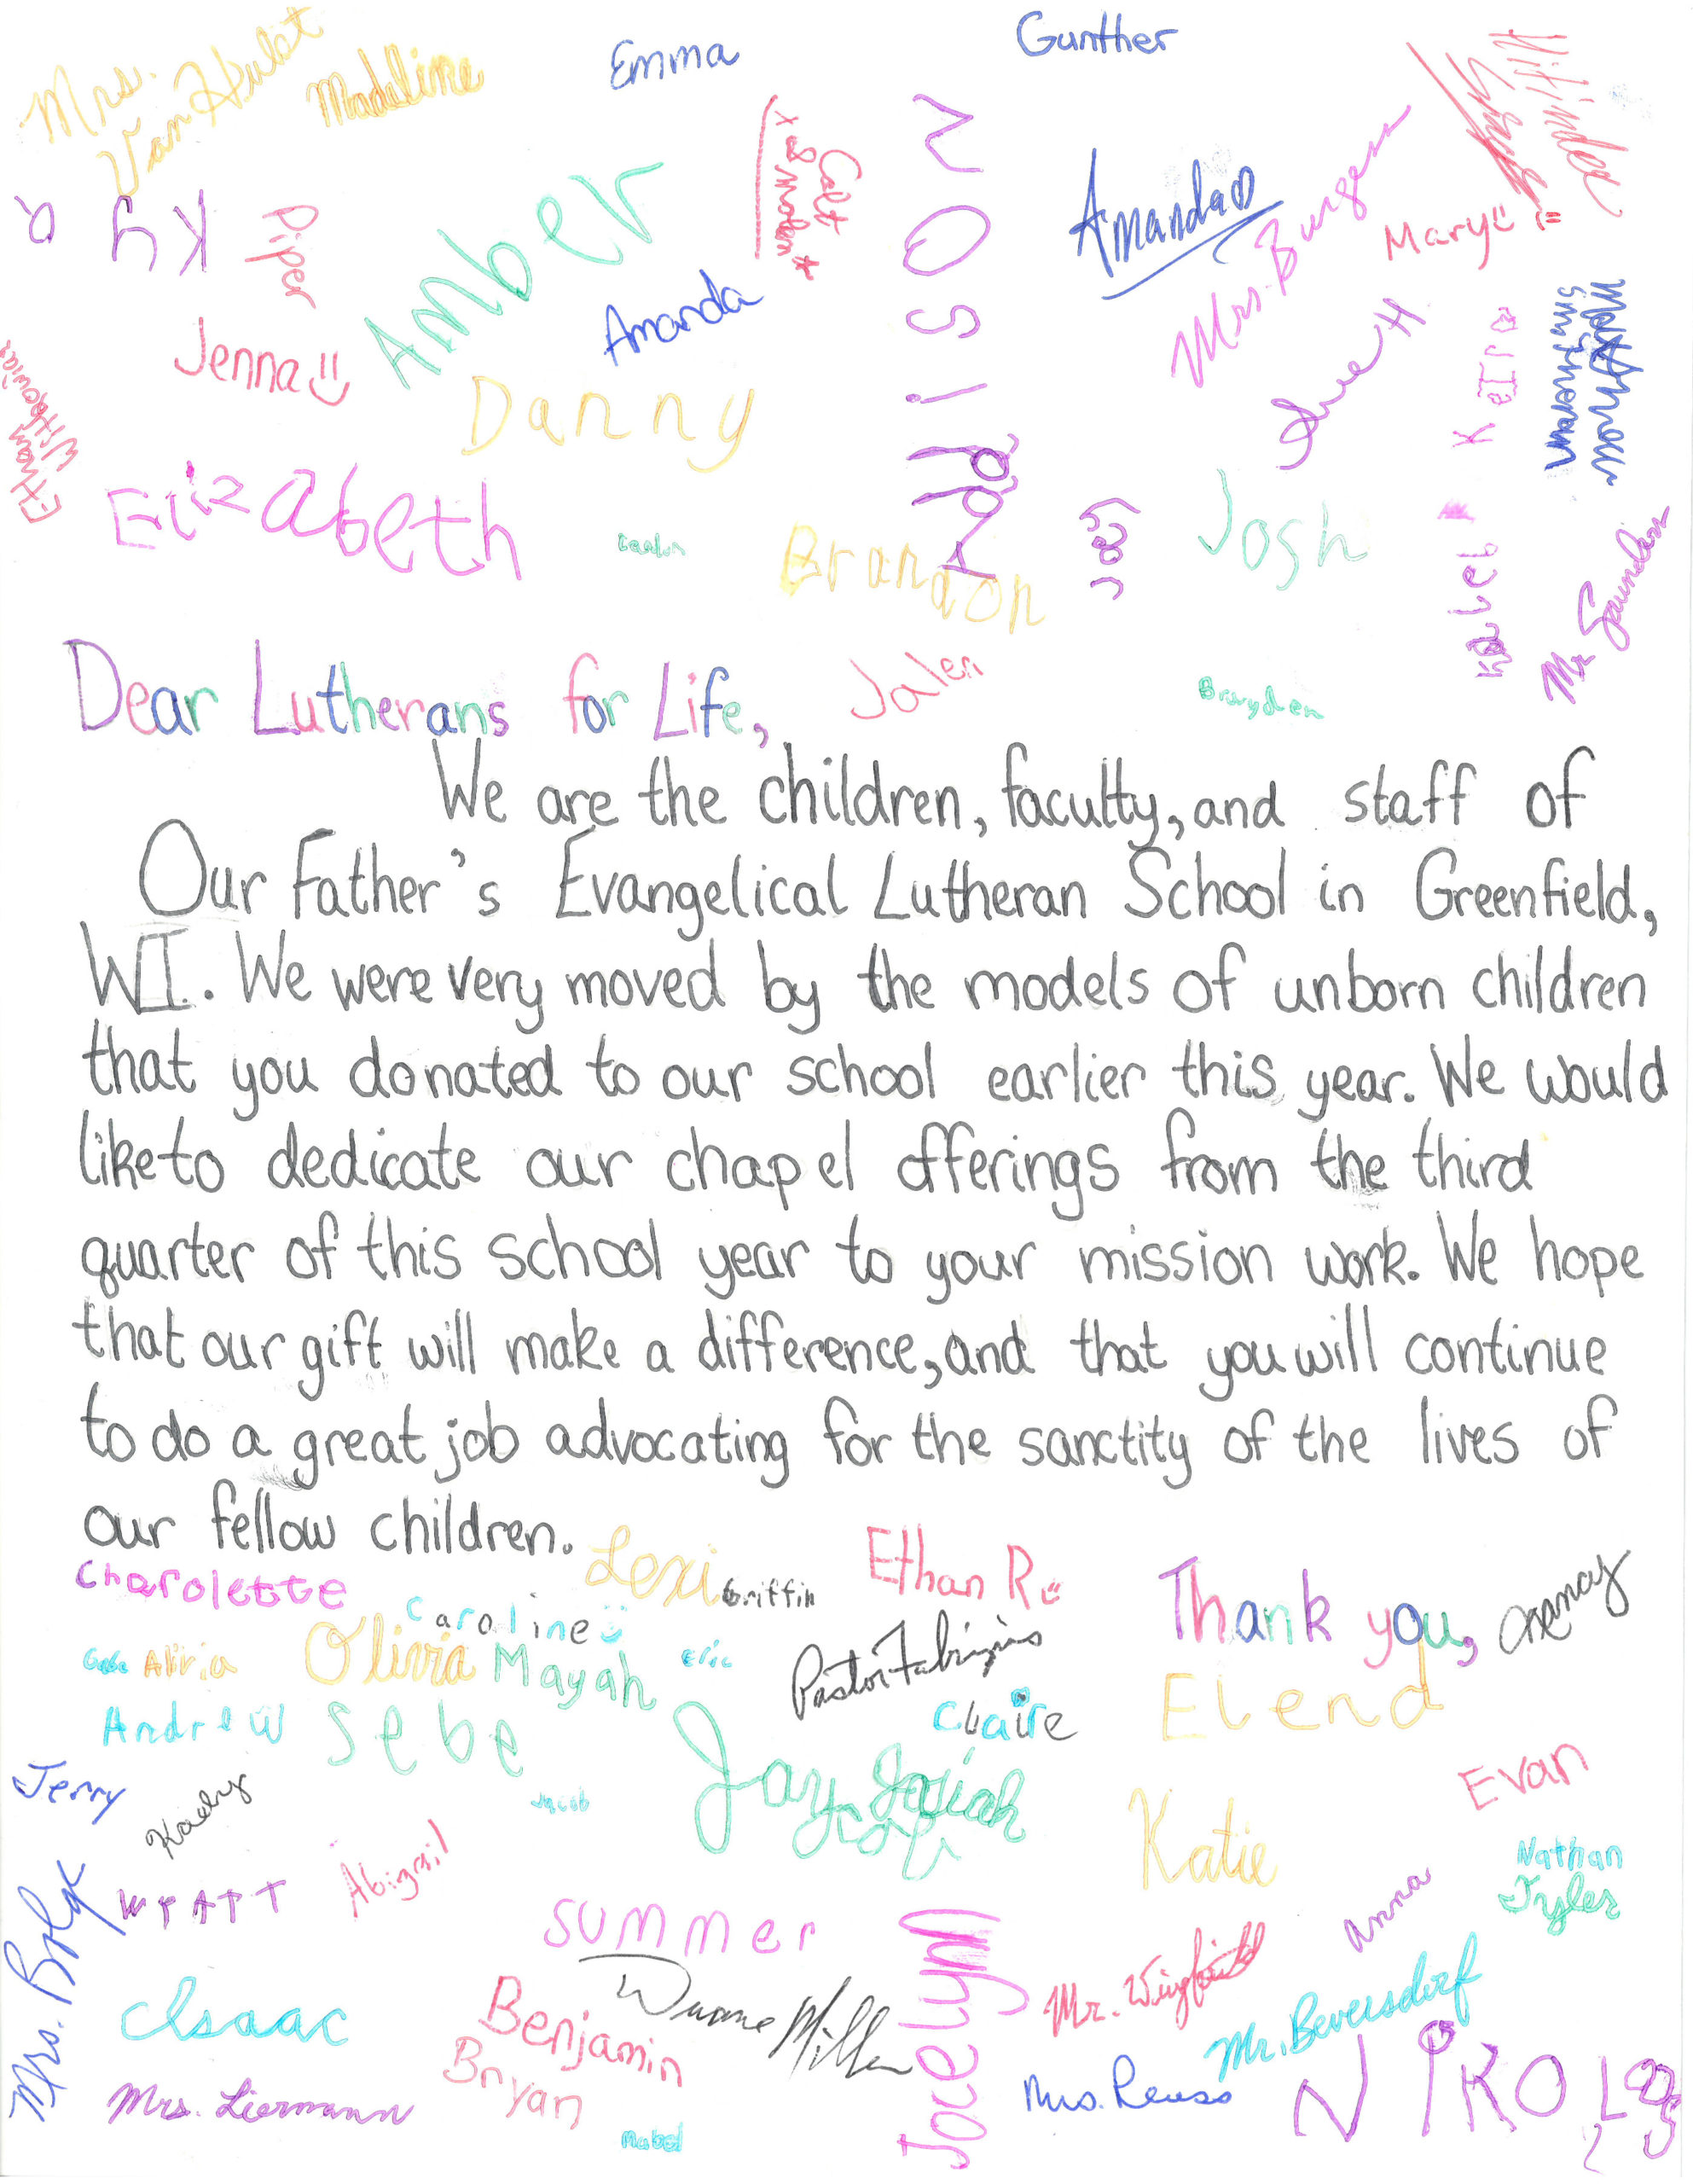 Mrs. Van Hulst
Madeline
Emma
Gunther
Kyra
Piper
Amber
Madison
Amanda
Mrs. Burgess
Mary
Jenna
Amanda
Danny
Keira
Elizabeth
Brandon
Joey
Josh
Kaleb
Mr. Saunders
Dear Lutherans for Life,
Jalen
Brayden
We are the children, faculty, and staff of
Our Father's Evangelical Lutheran School in Greenfield,
WI. We were very moved by the models of unborn children
that you donated to our school earlier this year. We would
like to dedicate our chapel offerings from the third
quarter of this school year to your mission work. We hope
that our gift will make a difference, and that you will continue
to do a great job advocating for the sanctity of the lives of
our fellow children.
Thank you,
Lexi
Griffin
Ethan R
Charolette
Caroline
Olivia
Mayah
Eric
Pastor Fabrizius
Elend
Andrew
Sebe
Claire
Jerry
Jay
Josiah
Evan
Katie
Nathan
Tyler
Wyatt
Abigail
Summer
Anna
Jocelyn
Isaac
Benjamin
Duane Miller
Mr. Wingfield
Mr. Beversdorf
Bryan
Mrs. Liermann
Mrs. Reuss
Mabel
Nikolas